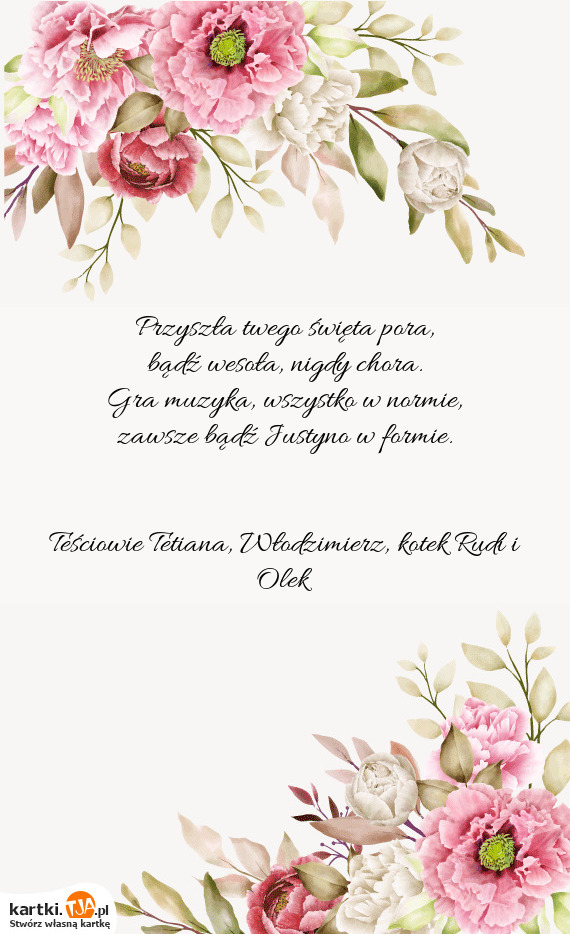 Przyszła twego święta pora,
bądź wesoła, nigdy chora.
Gra muzyka, wszystko w normie,
zawsze bądź Justyno w formie.
Teściowie Tetiana, Włodzimierz, kotek Rudi i
Olek
kartki.TJA.pl
Stwórz własną kartkę